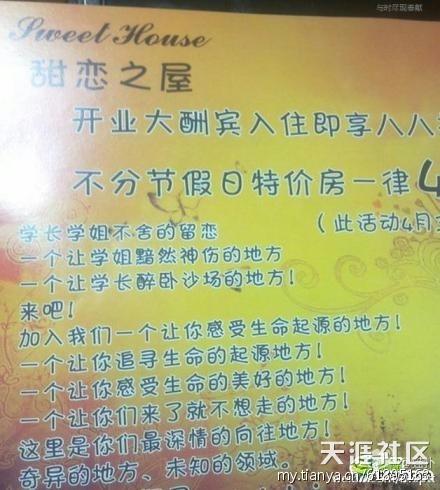 与时尽现奉献
Sweet House
甜恋之屋
开业大酬宾入住即享八八
不分节假日特价房一律4
学长学姐不舍的留恋
(此活动4月
一个让学姐黯然神伤的地方
一个让学长醉卧沙场的地方!
来吧!
加入我们一个让你感受生命起源的地方!
一个让你追寻生命的起源地方!
一个让你感受生命的美好的地方!
一个让你们来了就不想走的地方!
这里是你们最深情的向往地方!
奇异的地方、未知的领域。
天涯社区
my.tianya.cn/